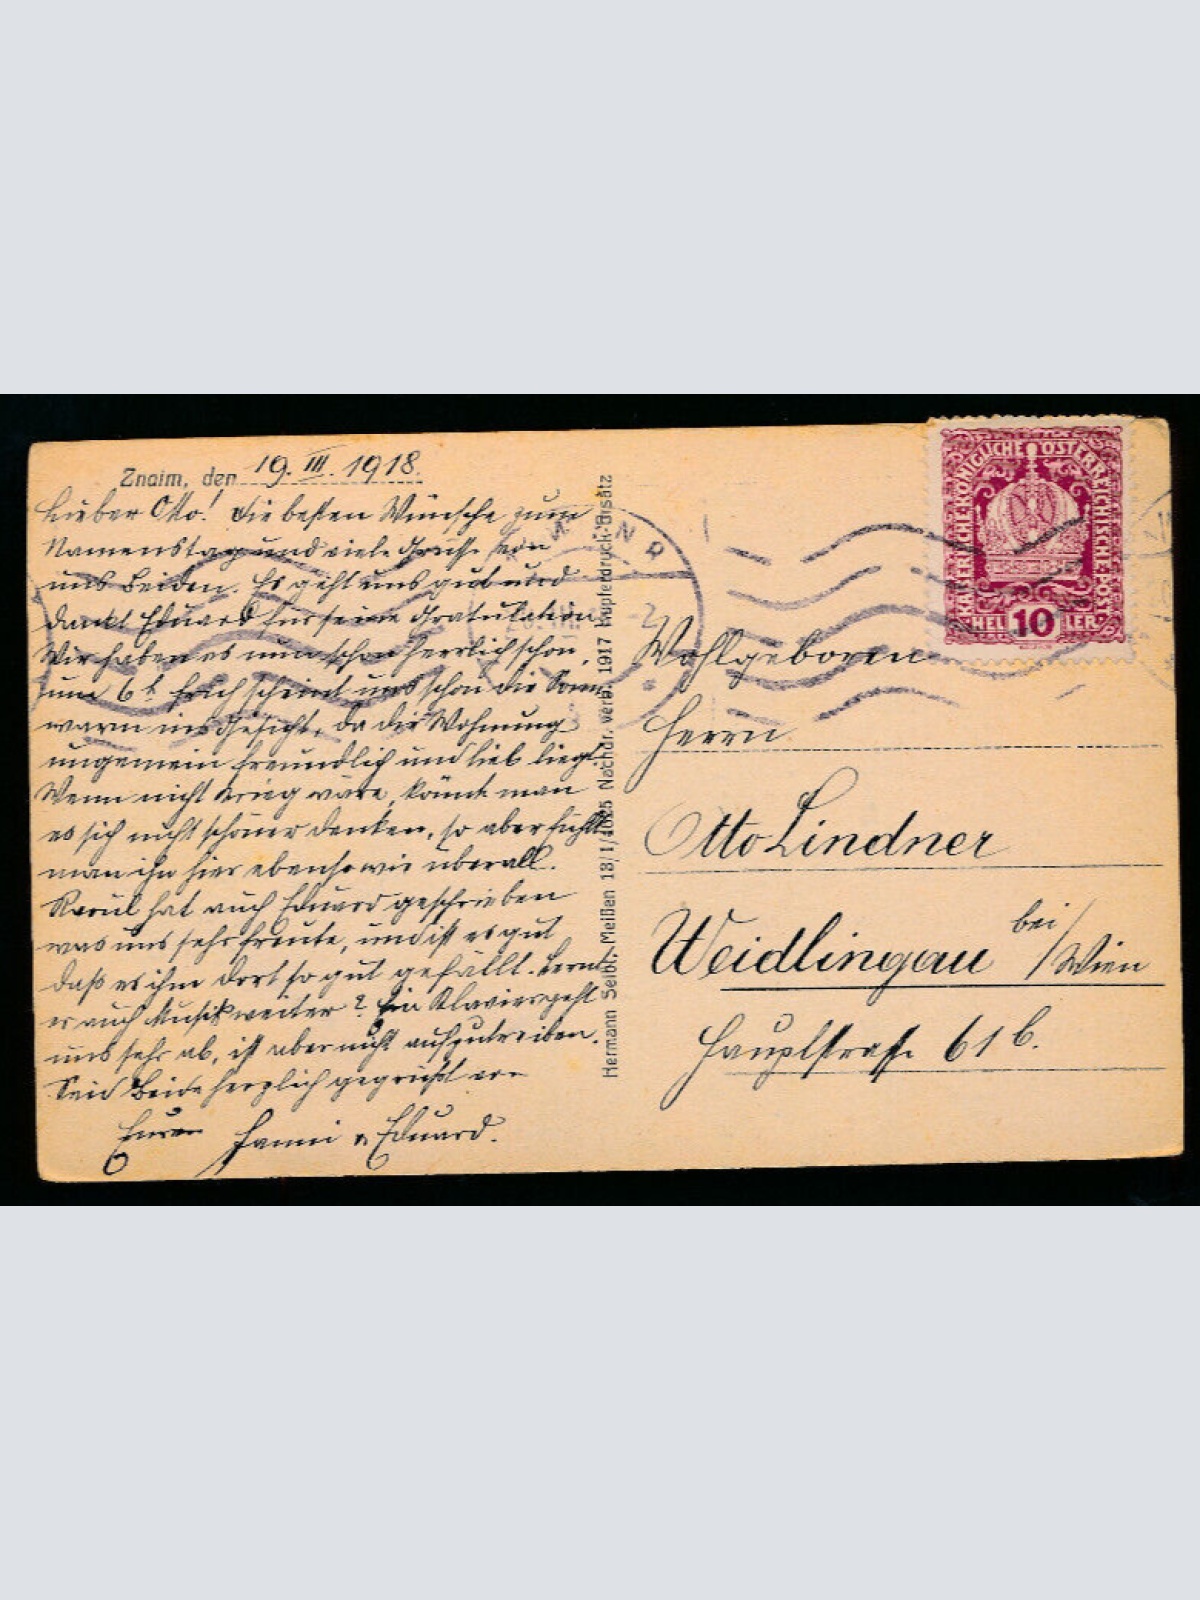 Znaim, den 19. III. 1918.
Lieber Otto! Die besten Wünsche zum
Namenstag und viele Grüsse von
uns Beiden. Es geht uns gut und
dankt Eduard für seine Gratulation.
Wir haben es nun schon herrlich schön,
um 6h früh scheint uns schon die Sonne
warm ins Gesicht, da die Wohnung
ungemein freundlich und lieb liegt.
Wenn nicht Krieg wäre, könnte man
es sich nicht schöner denken, so aber fühlt
man ihn hier ebenso wie überall.
Raoul hat auch Eduard geschrieben
was uns sehr freute, und ist es gut
daß es ihm dort so gut gefällt. Lernt
er auch Musik weiter? Ein Klavier geht
uns sehr ab, ist aber nicht aufzutreiben.
Seid Beide herzlich gegrüßt von
Euren Fanni u. Eduard.
Hermann Seibt, Meißen 13/1/ Nachdr. verb. 1917 Kupferdruck-Bisätz
KAISERLICHE KÖNIGLICHE ÖSTERREICHISCHE POST
HELLER
10
Wohlgeboren
Herrn
Otto Lindner
Weidlingau bei/Wien
Hauptstrasse 61b.